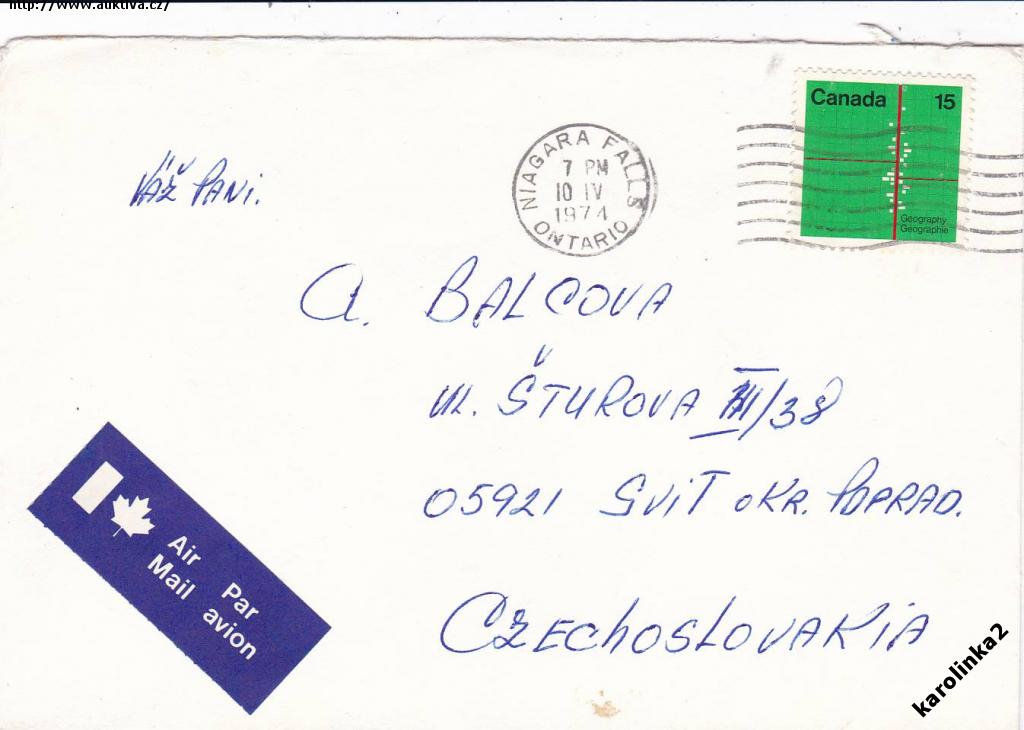 http://www.auktiva.cz/
Canada 15
Geography
Géographie
NIAGARA FALLS
7 PM
10 IV
1974
ONTARIO
VÁŽ PANI.
A. BALCOVA
UL. ŠTUROVA III/38
05921 SVIT OKR. POPRAD.
CZECHOSLOVAKIA
Air Par
Mail avion
karolinka2